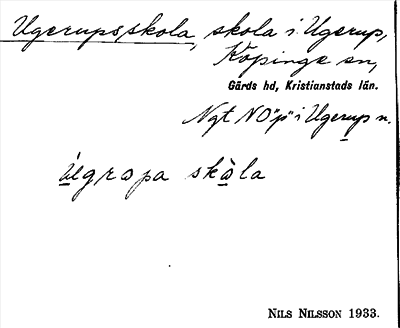 Ugerupsskola, skola i Ugerup,
Köpinge sn,
Gärds hd, Kristianstads län.
Ngt NO "p" i Ugerup n.
skola
NILS NILSSON 1933.